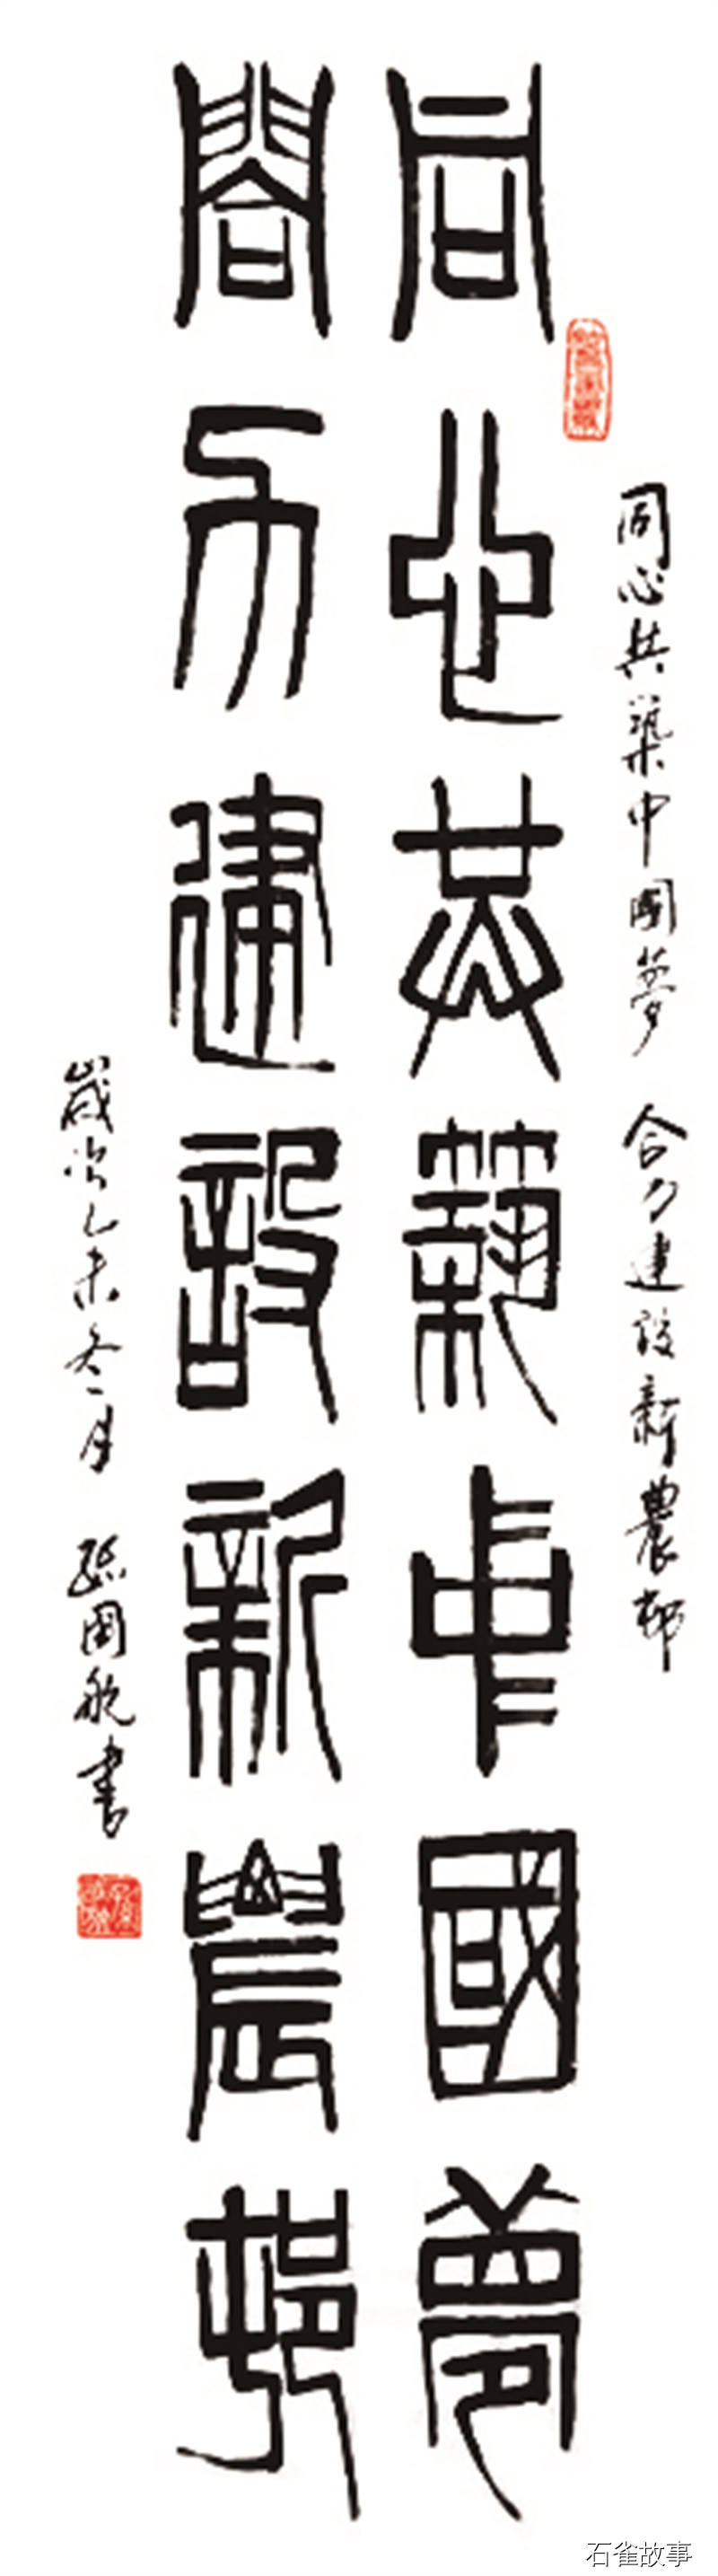 同心共築中國夢 合力建設新農邨
同心共築中國夢
閤力建設新農邨
歲次乙未冬月 孫國航書
石雀故事